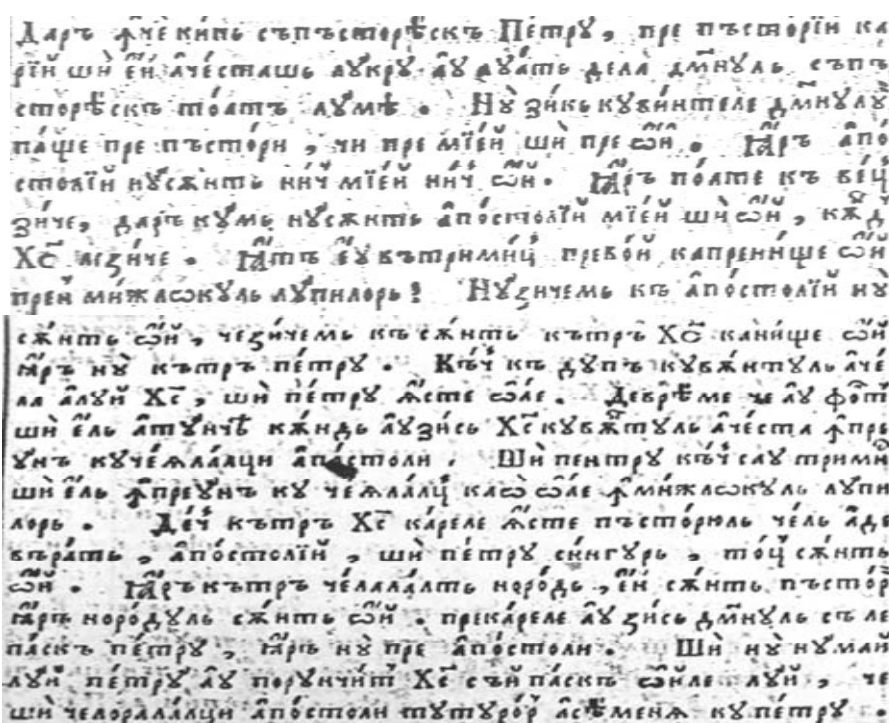 Даръ ꙟ҆чѐ кипь съпъсторѣскъ Пе́тръ, пре пъсторїи ка
рїй шѝ є҆́и а҆че́сташь лꙋкрꙋ а҆ꙋ лꙋа́ть дела дм҃нꙋль съпъ
сторѣскъ то́атъ лꙋмѣ . Нꙋ̀ зи́кь кꙋви́нтеле дм҃нꙋлꙋ́й
па́ще пре пъсто́ри , чи пре мїе́й шѝ пре ѻ҆́й . Ꙗ҆́ръ а҆по́
столїй нꙋсѫ́нть ни́ч мїе́й ни́ч ѻ҆́й. Ꙗ҆́ръ по́ате къ ве́ц
зи́че, даръ кꙋмь нꙋсѫ́нть а҆по́столїй мїе́й шѝ ѻ҆́й, кѫ́д
Хс҃ ле зи́че . Ꙗ҆́тъ є҆́ꙋ вътрими́ц превѻ́й капрени́ще ѻ҆́й
прен ми́жлѡкꙋль лꙋпилорь! Нꙋзи́чемь къ а҆по́столїй нꙋ̀
сѫ́нть ѻ҆́й , чезичемь къ сѫ́нть кътръ Хс҃ кани́ще ѻ҆́й
ꙗ҆́ръ нꙋ̀ кътръ пе́трꙋ . Къ́ч къ дꙋпъ кꙋвѫ́нтꙋль а҆че́
ла а҆лꙋ́й Хс҃, шѝ пе́трꙋ ꙗ҆́сте ѻ҆́ае. Деврѣ́ме че а҆ꙋ фо́ст
шѝ є҆́ль а҆тꙋ́нчѣ кѫ́ндь а҆ꙋзи́сь Хс҃ кꙋвѫ́нтꙋль а҆че́ста ꙟ҆пре
ꙋ́нъ кꙋче́ѧлалци а҆по́столи . Шѝ пентрꙋ къ́ч саꙋ трими́с
шѝ є҆́ль ꙟ҆преꙋ́нъ кꙋ че́ѧлалц каѡ҆̀ ѻ҆́ае ꙟ҆ми́жлѡкꙋль лꙋпи
лорь . Де́ч кътръ Хс҃ ка́реле ꙗ҆́сте пъсто́рюль че́ль а҆де
въра́ть , а҆по́столїй , шѝ пе́трꙋ си́нгꙋрь , то́ц сѫ́нть
ѻ҆́й . Ꙗ҆́ръ кътръ че́лалалть норо́дь , є҆́и сѫ́нть пъсто́р
ꙗ҆́ръ норо́дꙋль сѫ́нть ѻ҆́й . прека́реле а҆ꙋ зи́сь дм҃нꙋль съ ле
па́скъ пе́трꙋ , ꙗ҆́ръ нꙋ̀ пре а҆по́столи . Шѝ нꙋ̀ нꙋма́й
лꙋ́й пе́трꙋ а҆ꙋ порꙋнчи́т Хс҃ съ́й па́скъ ѻ҆́иле лꙋ́й , че
шѝ челорала́лци а҆по́столи тꙋтꙋро́р а҆сѣ́менѧ кꙋпе́трꙋ .